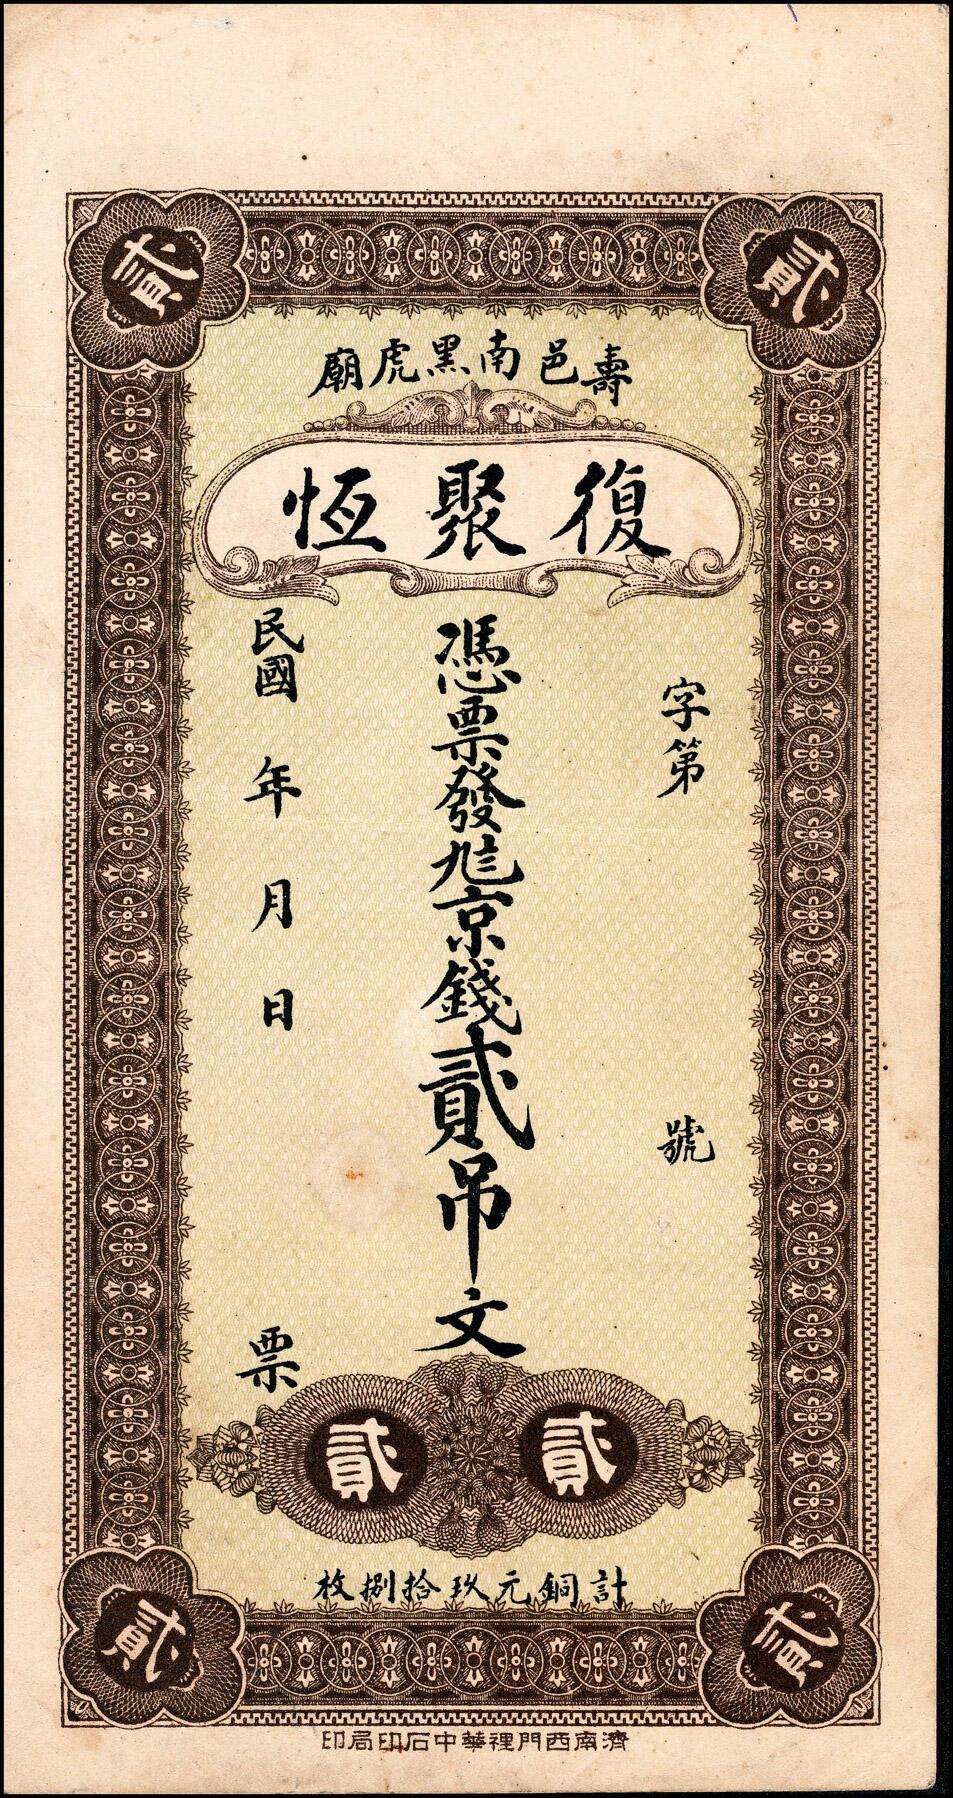 貳 貳
壽邑南黑虎廟
復聚恆
字第 號
憑票發 京錢貳吊文
民國 年 月 日 票
貳 貳
計銅元玖拾捌枚
貳 貳
濟南西門裡華中石印局印